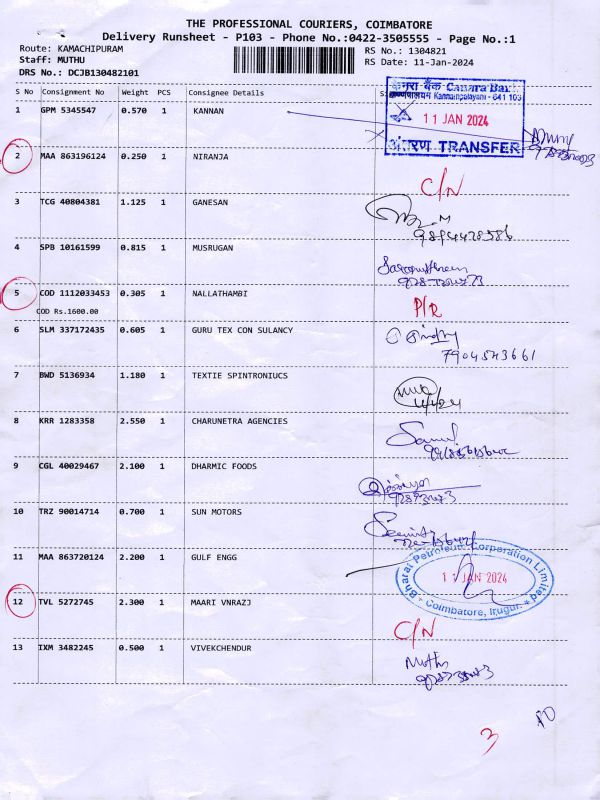 THE PROFESSIONAL COURIERS, COIMBATORE
Delivery Runsheet - P103 - Phone No.:0422-3505555 - Page No.:1
Route: KAMACHIPURAM
RS No.: 1304821
Staff: MUTHU
RS Date: 11-Jan-2024
DRS No.: DCJB130482101
S No Consignment No Weight PCS Consignee Details
1 GPM 5345547 0.570 1 KANNAN
केनरा बैंक Canara Bank
Kannampalayam - 641 103
11 JAN 2024
अंतरण TRANSFER
2 MAA 863196124 0.250 1 NIRANJA
C/N
3 TCG 40804381 1.125 1 GANESAN
4 SPB 10161599 0.815 1 MUSRUGAN
5 COD 1112033453 0.305 1 NALLATHAMBI
COD Rs.1600.00
P/R
6 SLM 337172435 0.605 1 GURU TEX CON SULANCY
7904543661
7 BWD 5136934 1.180 1 TEXTIE SPINTRONIUCS
8 KRR 1283358 2.550 1 CHARUNETRA AGENCIES
9 CGL 40029467 2.100 1 DHARMIC FOODS
10 TRZ 90014714 0.700 1 SUN MOTORS
11 MAA 863720124 2.200 1 GULF ENGG
Bharat Petroleum Corporation Limited
11 JAN 2024
Coimbatore, Irugur.
12 TVL 5272745 2.300 1 MAARI VNRAZJ
C/N
13 IXM 3482245 0.500 1 VIVEKCHENDUR
3